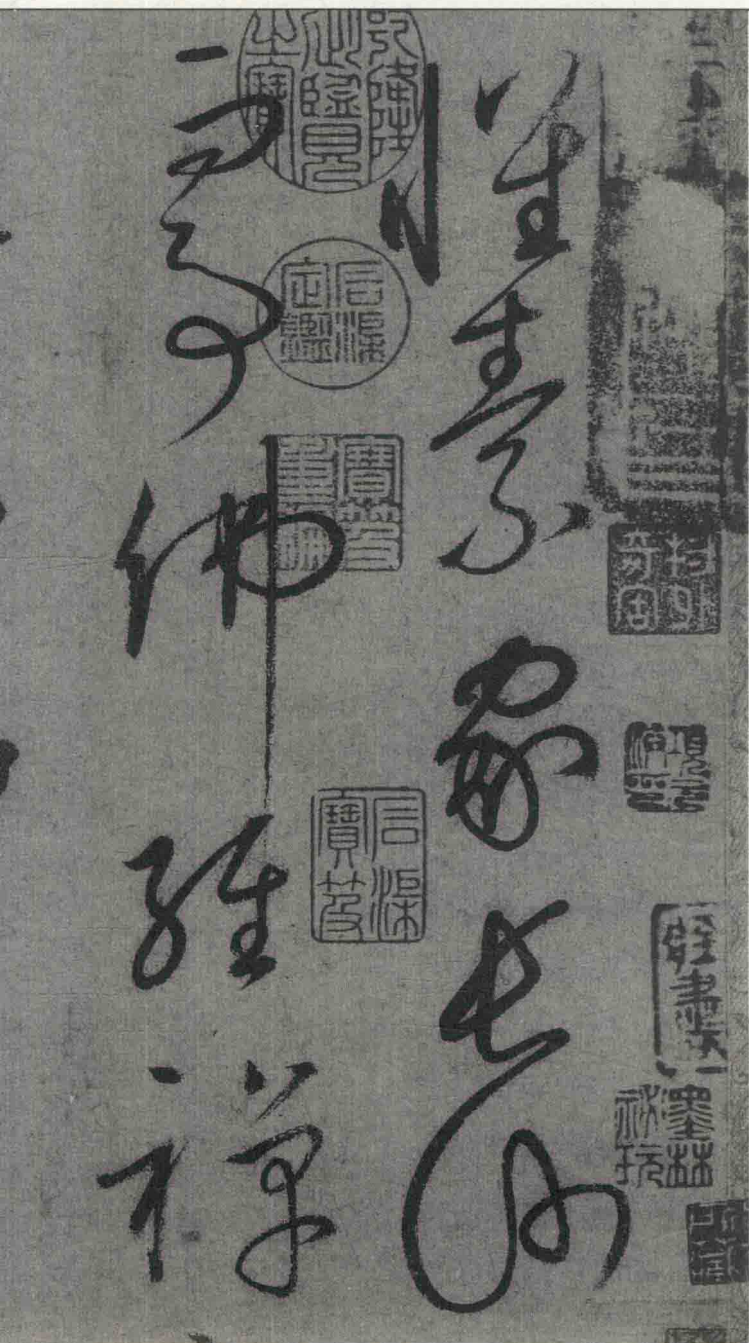 懷素家長沙
幼而事佛經禪
乾隆御覽之寶
石渠定鑑
寶笈重編
石渠寶笈
墨林祕玩